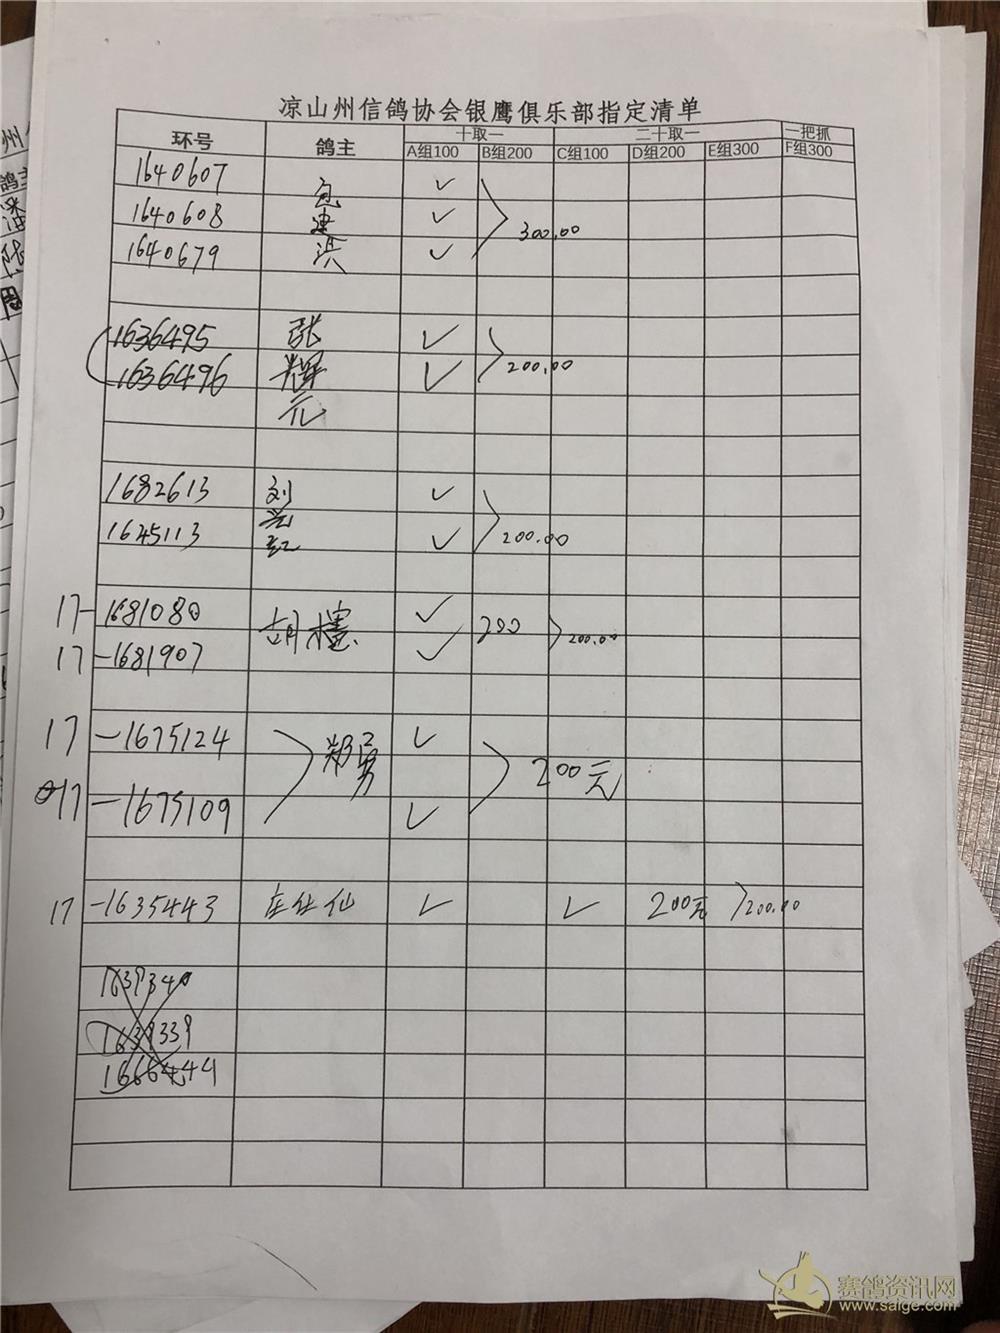 凉山州信鸽协会银鹰俱乐部指定清单
环号 鸽主 十取一 二十取一 一把抓
A组100 B组200 C组100 D组200 E组300 F组300
1640607 ✓
包
1640608 建 ✓
300.00
1640679 洪 ✓
1636495 张 ✓
1636496 辉 ✓ 200.00
元
1682613 刘 ✓
1645113 ✓ 200.00
17-1681080 ✓
胡 200 200.00
17-1681907 ✓
17-1675124 ✓
郑勇 200元
17-1675109 ✓
17-1635443 庄仕仙 ✓ ✓ 200元 200.00
1639340
1639339
1666444
赛鸽资讯网
www.saige.com